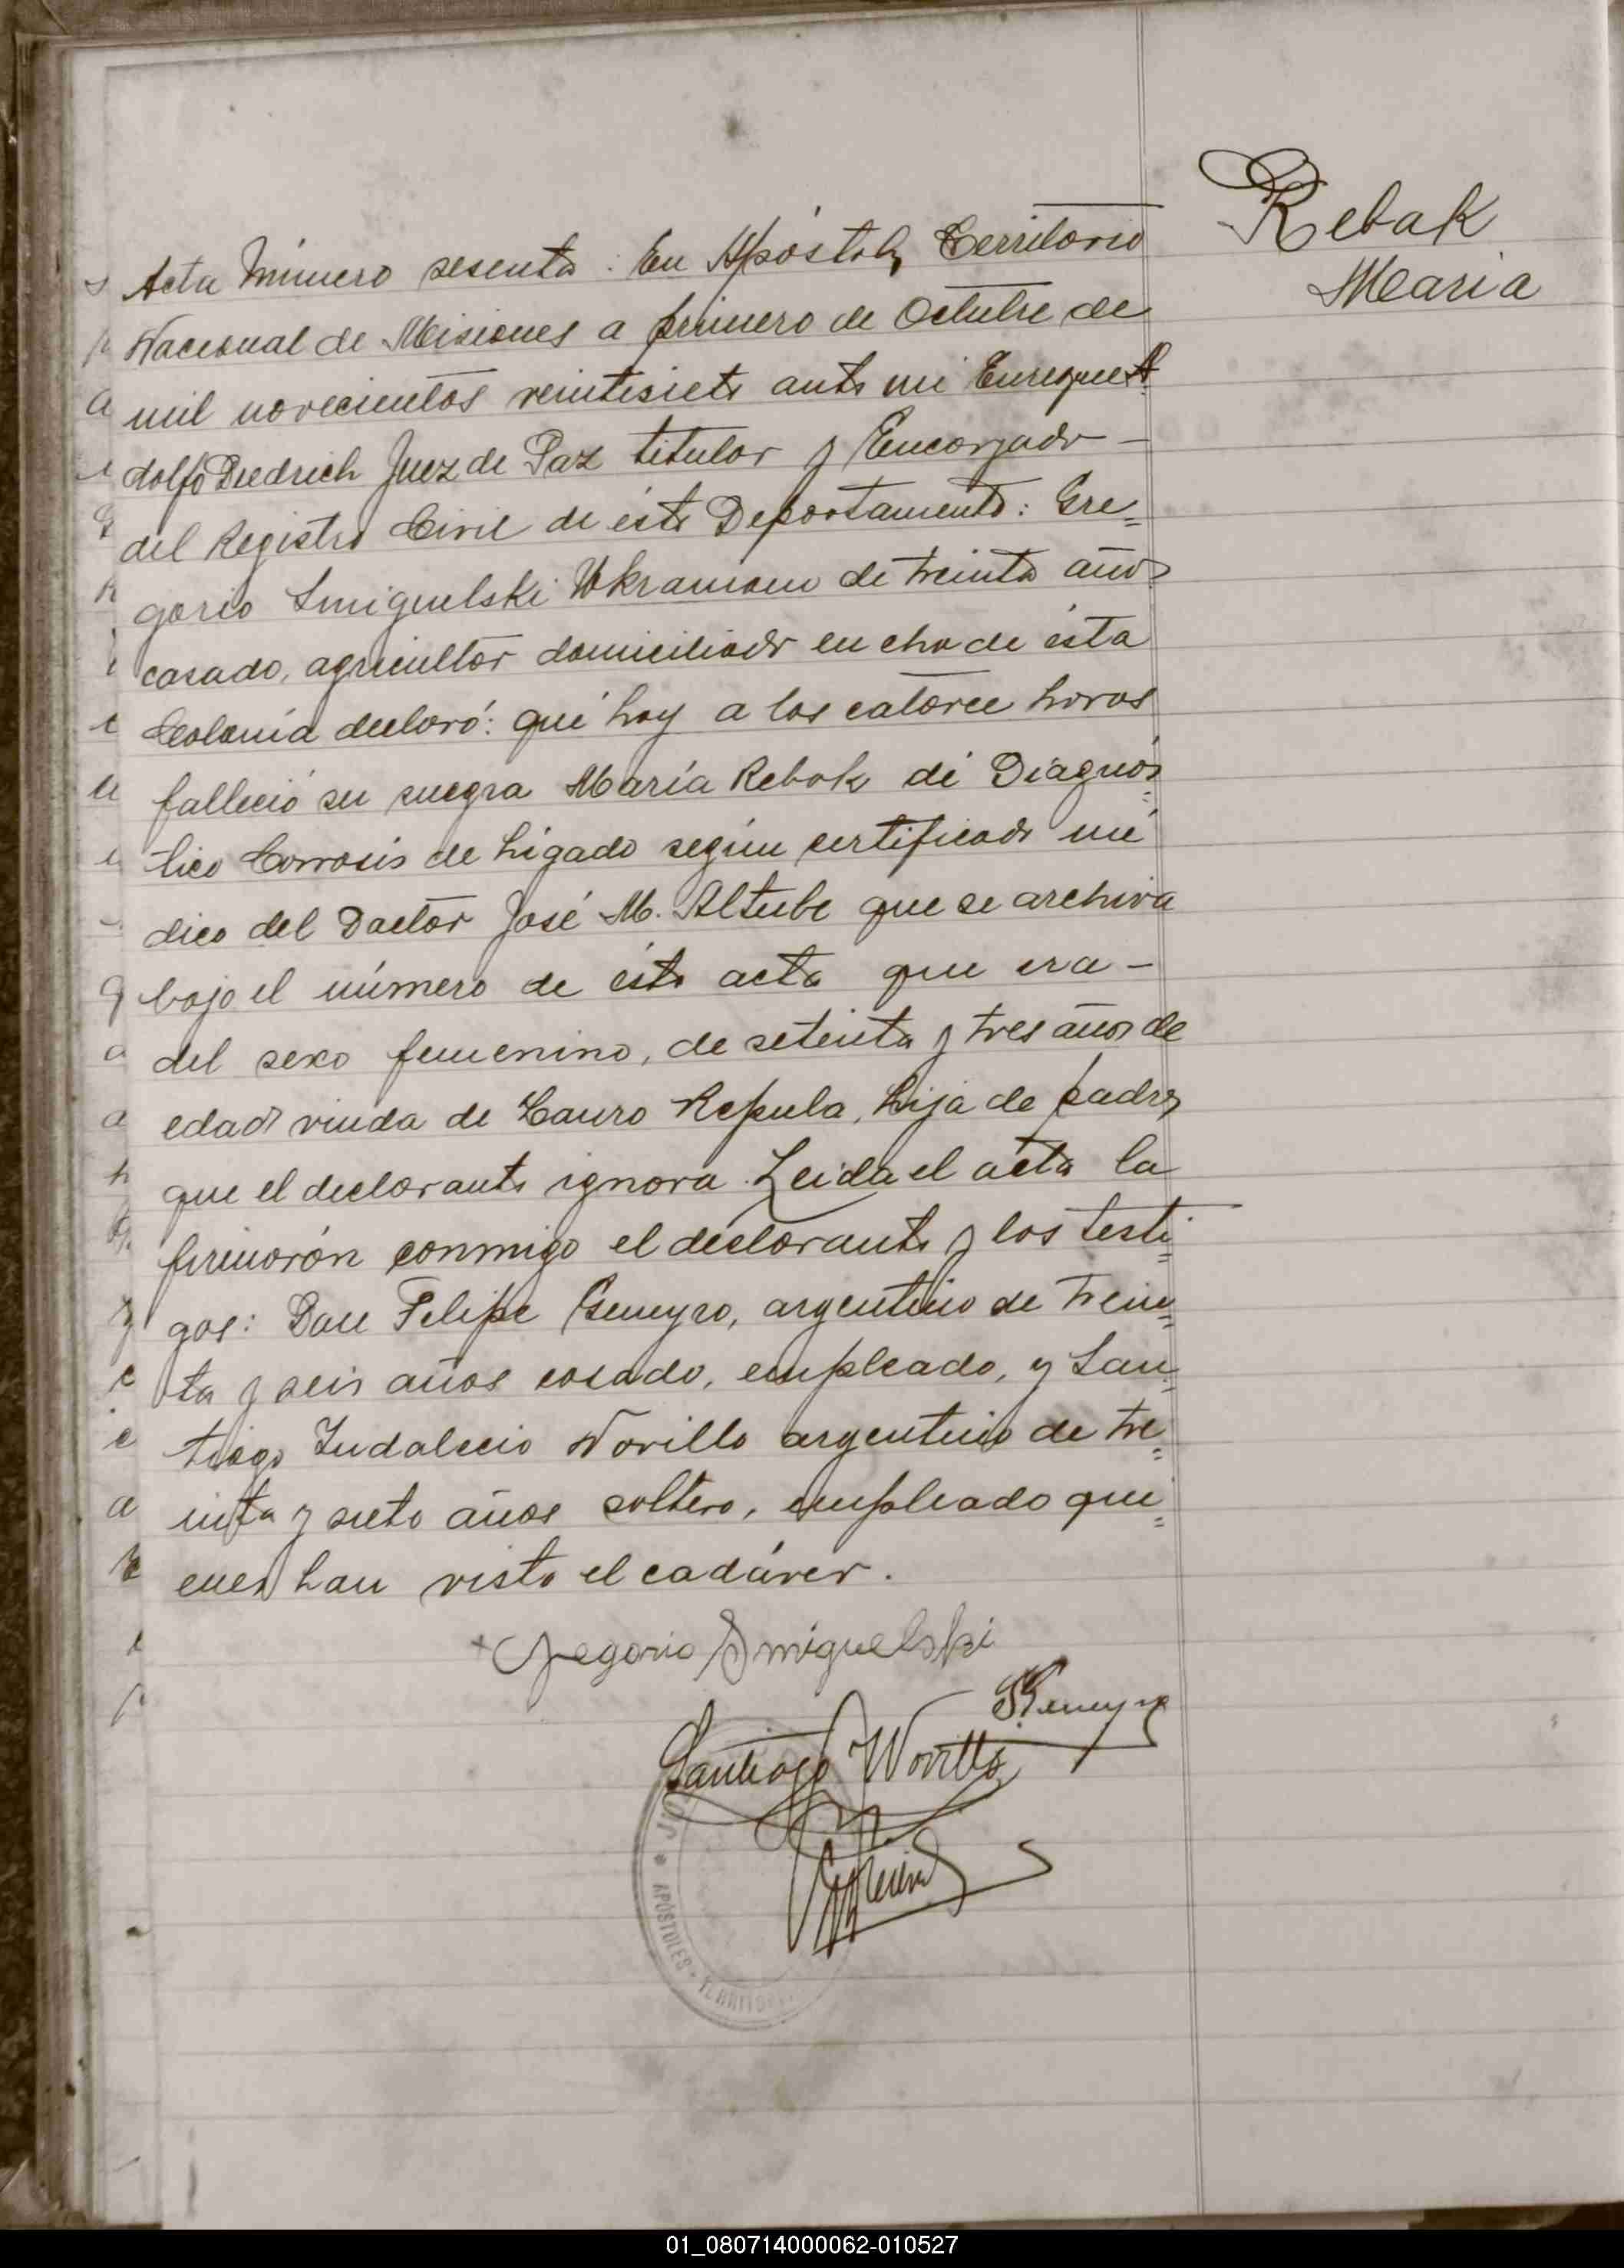 Rebak
Maria
Acta Número sesenta: En Apóstoles Territorio
Nacional de Misiones a primero de Octubre de
mil novecientos veintisiete ante mi Enrique A
dolfo Diedrich Juez de Paz titular y Encargado -
del Registro Civil de éste Departamento: Gre=
gorio Smiguelski Ukraniano de treinta años
casado, agricultor domiciliado en cha de ésta
Colonia declaró: qué hoy a las catorce horas
falleció su suegra María Rebak de Diagnós=
tico Cirrosis de hígado según certificado mé
dico del Doctor José M. Altube que se archiva
bajo el número de ésta acta que era -
del sexo femenino, de setenta y tres años de
edad viuda de Lauro Repula, hija de padres
que el declarante ignora. Leida el acta la
firmarón conmigo el declarante y los testi=
gos: Don Felipe Geneyro, argentino de trein=
ta y seis años casado, empleado, y San=
tiago Indalecio Novillo argentino de tre=
inta y siete años soltero, empleado qui=
enes han visto el cadáver.
Gregorio Smiguelski
Geneyro
Santiago Novillo
APÓSTOLES - TERRITORIO
01_080714000062-010527